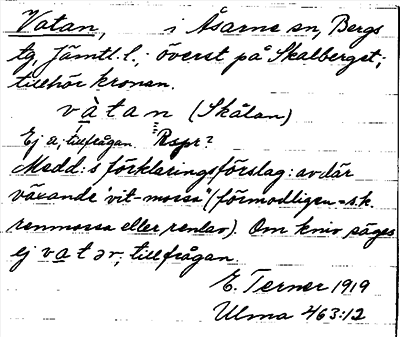 Vatan, i Åsarne sn, Bergs
tg, Jämtl. l.; överst på Skalberget;
tillhör kronan.
vàtan (Skålan)
Ej a; tillfrågan. Respr?
Medd:s förklaringsförslag: av där
växande "vit-mossa" (förmodligen = s.k.
renmossa eller renlav). Om kniv säges
ej vatər; tillfrågan.
E. Terner 1919
Ulma 463:12